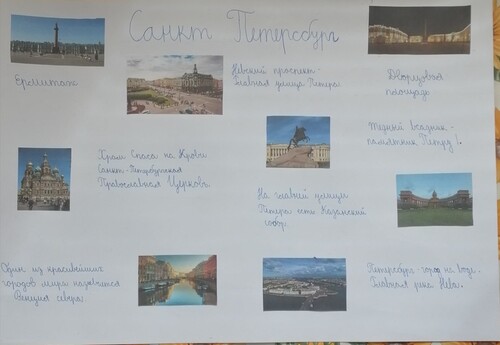 Санкт Петербург
Эрмитаж
Невский проспект-
Главная улица Питера
Дворцовая
площадь
Храм Спаса на Крови
Санкт-Петербургская
Православная Церковь
Медный всадник-
памятник Петру I.
На главной улице
Питера есть Казанский
собор.
Один из красивейших
городов мира называется
Венеция севера.
Петербург-город на воде.
Главная река Нева.